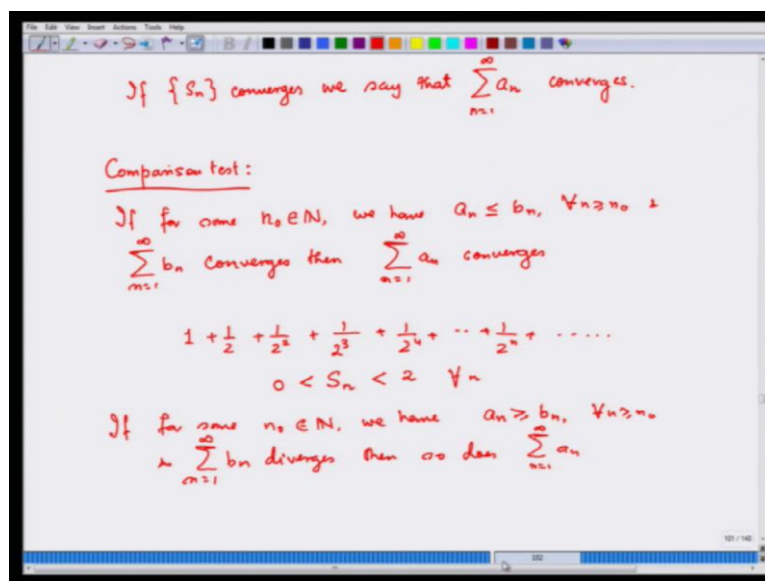 File Edit View Insert Actions Tools Help
B I
If {Sn} converges we say that ∞∑n=1 an converges.
Comparison test:
If for some n₀ ∈ ℕ, we have an ≤ bn, ∀n ≥ n₀ &
∞∑n=1 bn converges then ∞∑n=1 an converges
1 + 1/2 + 1/2² + 1/2³ + 1/2⁴ + ·· + 1/2ⁿ + .....
0 < Sn < 2 ∀n
If for some n₀ ∈ ℕ, we have an ≥ bn, ∀n ≥ n₀
& ∞∑n=1 bn diverges then so does ∞∑n=1 an
101 / 140
102